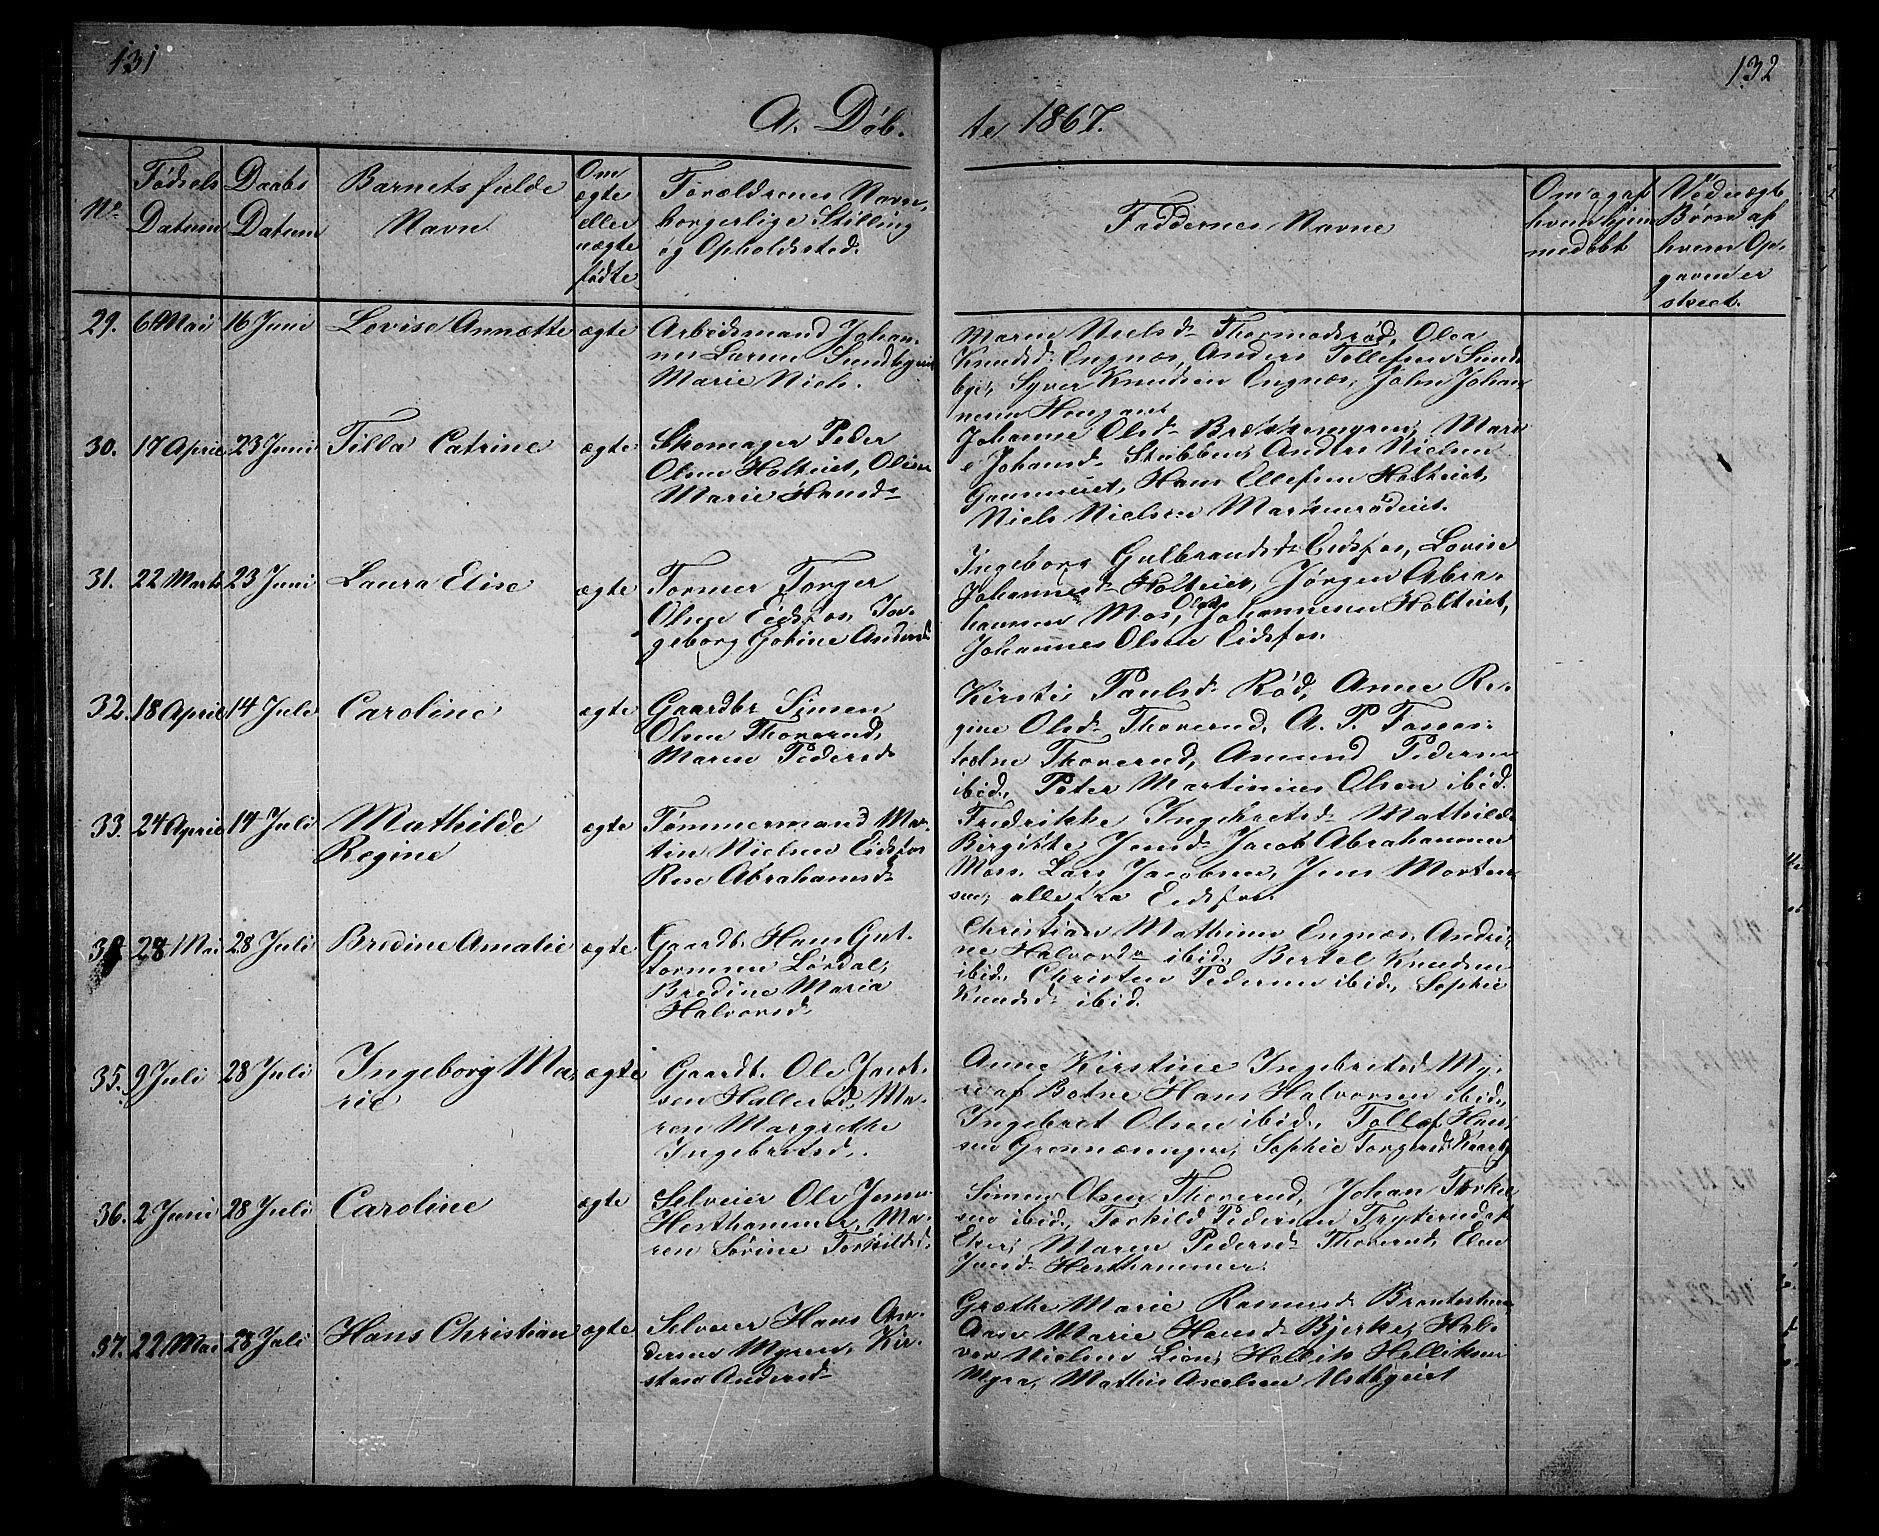 131
132
A. Døb.
te 1867.
No
Fødsels Datum
Daabs Datum
Barnets fulde Navn
Om ægte eller uægte fødte
Forældrenes Navn, borgerlige Stilling og Opholdssted.
Faddernes Navne
Om af hvem hjemmedøbt
Ved uægte Børn af hvem Opgaven er skeet.
29. 6 Mai 16 Juni Lovise Annette ægte Arbeidsmand Johan-
nes Larsen Sundbyeie
Marie Niels.
Maren Nielsd. Thormodsrød, Olea
Knudsd. Engnæs, Anders Tollefsen Sund-
bye, Syver Knudsen Engnæs, John Johan-
nesen Haugane
30. 17 April 23 Juni Tilla Catrine ægte Skomager Peder
Olsen Holteiet, Oline
Marie Hansd.
Johanne Olsd. Brækkemyren, Mari-
e Johansd. Stubben, Anders Nielsen
Hans Ellefsen Holteiet,
Niels Nielsen
31. 22 Marts 23 Juni Laura Elise ægte Former Torger
Olsen Eidsfos, In-
geborg Gokine Andersd
Ingeborg Gulbrandsd. Eidsfos, Lovise
Johannesd. Holteiet, Jørgen Abra-
hamsen Mos, Ole Johannesen Holteiet,
Johannes Olsen Eidsfos.
32. 18 April 14 Juli Caroline ægte Gaardbr Simen
Olsen Thoverud,
Maren Pedersd.
Kirsti Paulsd. Rød, Anne Re-
gine Olsd. Thoverud, A. P. Fosses-
holm Thoverud, Amund Pedersen
ibid., Peter Martinius Olsen ibid.
33. 24 April 14 Juli Mathilde
Regine ægte Tømmermand Mar-
tin Nielsen Eidsfos
Rise Abrahamsd.
Fredrikke Ingebretsd. Mathilde
Birgitte Jensd. Jacob Abrahamsen
Moss. Lars Jacobsen, Jens Morten-
sen, alle fra Eidsfos.
34. 24 Mai 28 Juli Bredine Amalie ægte Gaardb. Hans Gut-
tormsen Lørdal,
Bredine Maria
Halvorsd.
Christian Mathisen Engnæs, Andri-
ne Halvorsd. ibid., Bertel Knudsen
ibid., Christen Pedersen ibid., Sophie
Knudsd. ibid.
35. 9 Juli 28 Juli Ingeborg Ma-
rie ægte Gaardb. Ole Jacob-
sen Hallerud, Ma-
ren Margrethe
Ingebretsd.
Anne Kirstine Ingebretsd. My-
re af Botne Hans Halvorsen ibid.,
Ingebret Olsen ibid., Tollef Han-
sen Grennæsningen, Sophie Torgersd.
36. 2 Juni 28 Juli Caroline ægte Selveier Ole Jensen
Hesthammer, Ma-
ren Sørine Torkildsd.
Simen Olsen Thoverud, Johan Torkel-
sen ibid., Torkild Pedersen Trykerud af
Eker, Maren Pedersd. Thoverud, Elen
Jensd. Hesthammer.
37. 22 Mai 28 Juli Hans Christian ægte Selveier Hans An-
dersen Myren, Kir-
stine Andersd.
Grethe Marie Rasmusd.
Aase Marie Hansd. Bjerke, Hal-
vor Nielsen Lien, Hellik Helliksen
Myra, Mathis Axelsen